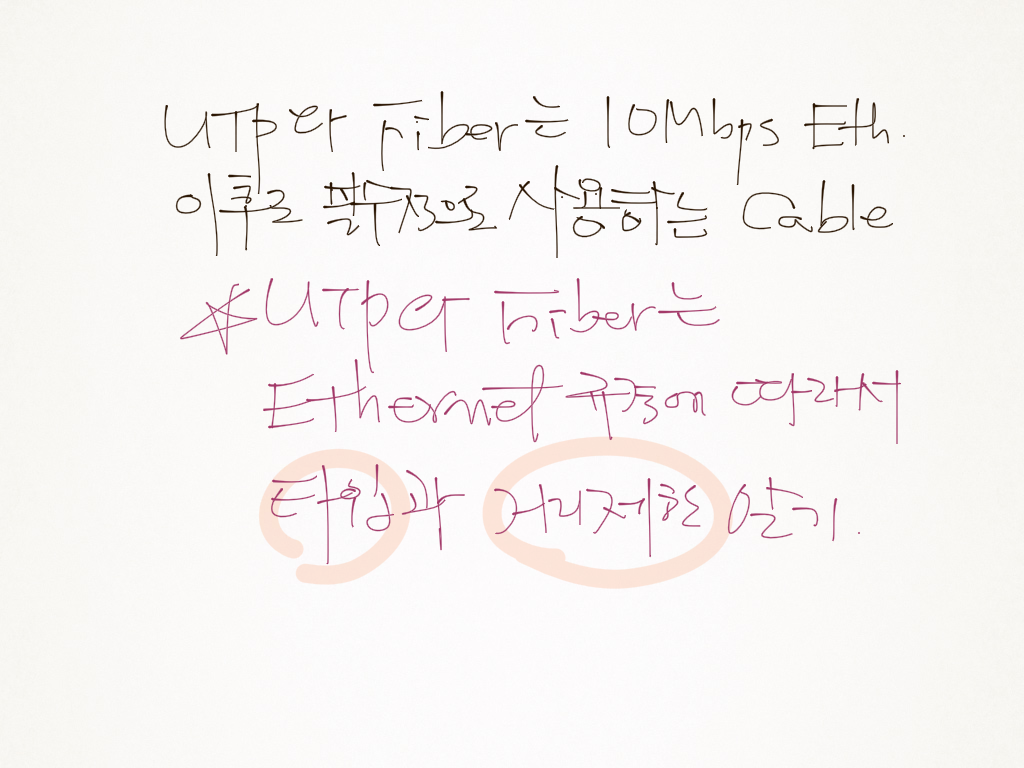 UTP와 Fiber는 10Mbps Eth.
이후로 필수적으로 사용하는 Cable
☆UTP와 Fiber는
Ethernet 규정에 따라서
타입과 거리제한 알기.